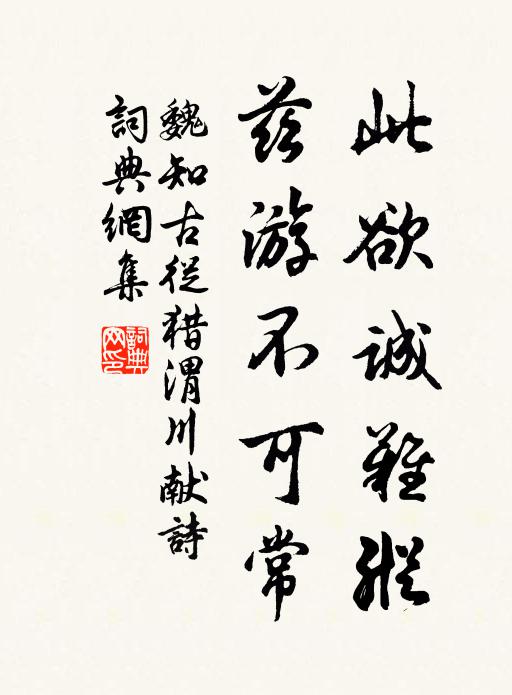 此欲誠難縱
茲游不可常
魏知古從猎渭川献詩
詞典網集
詞典網印